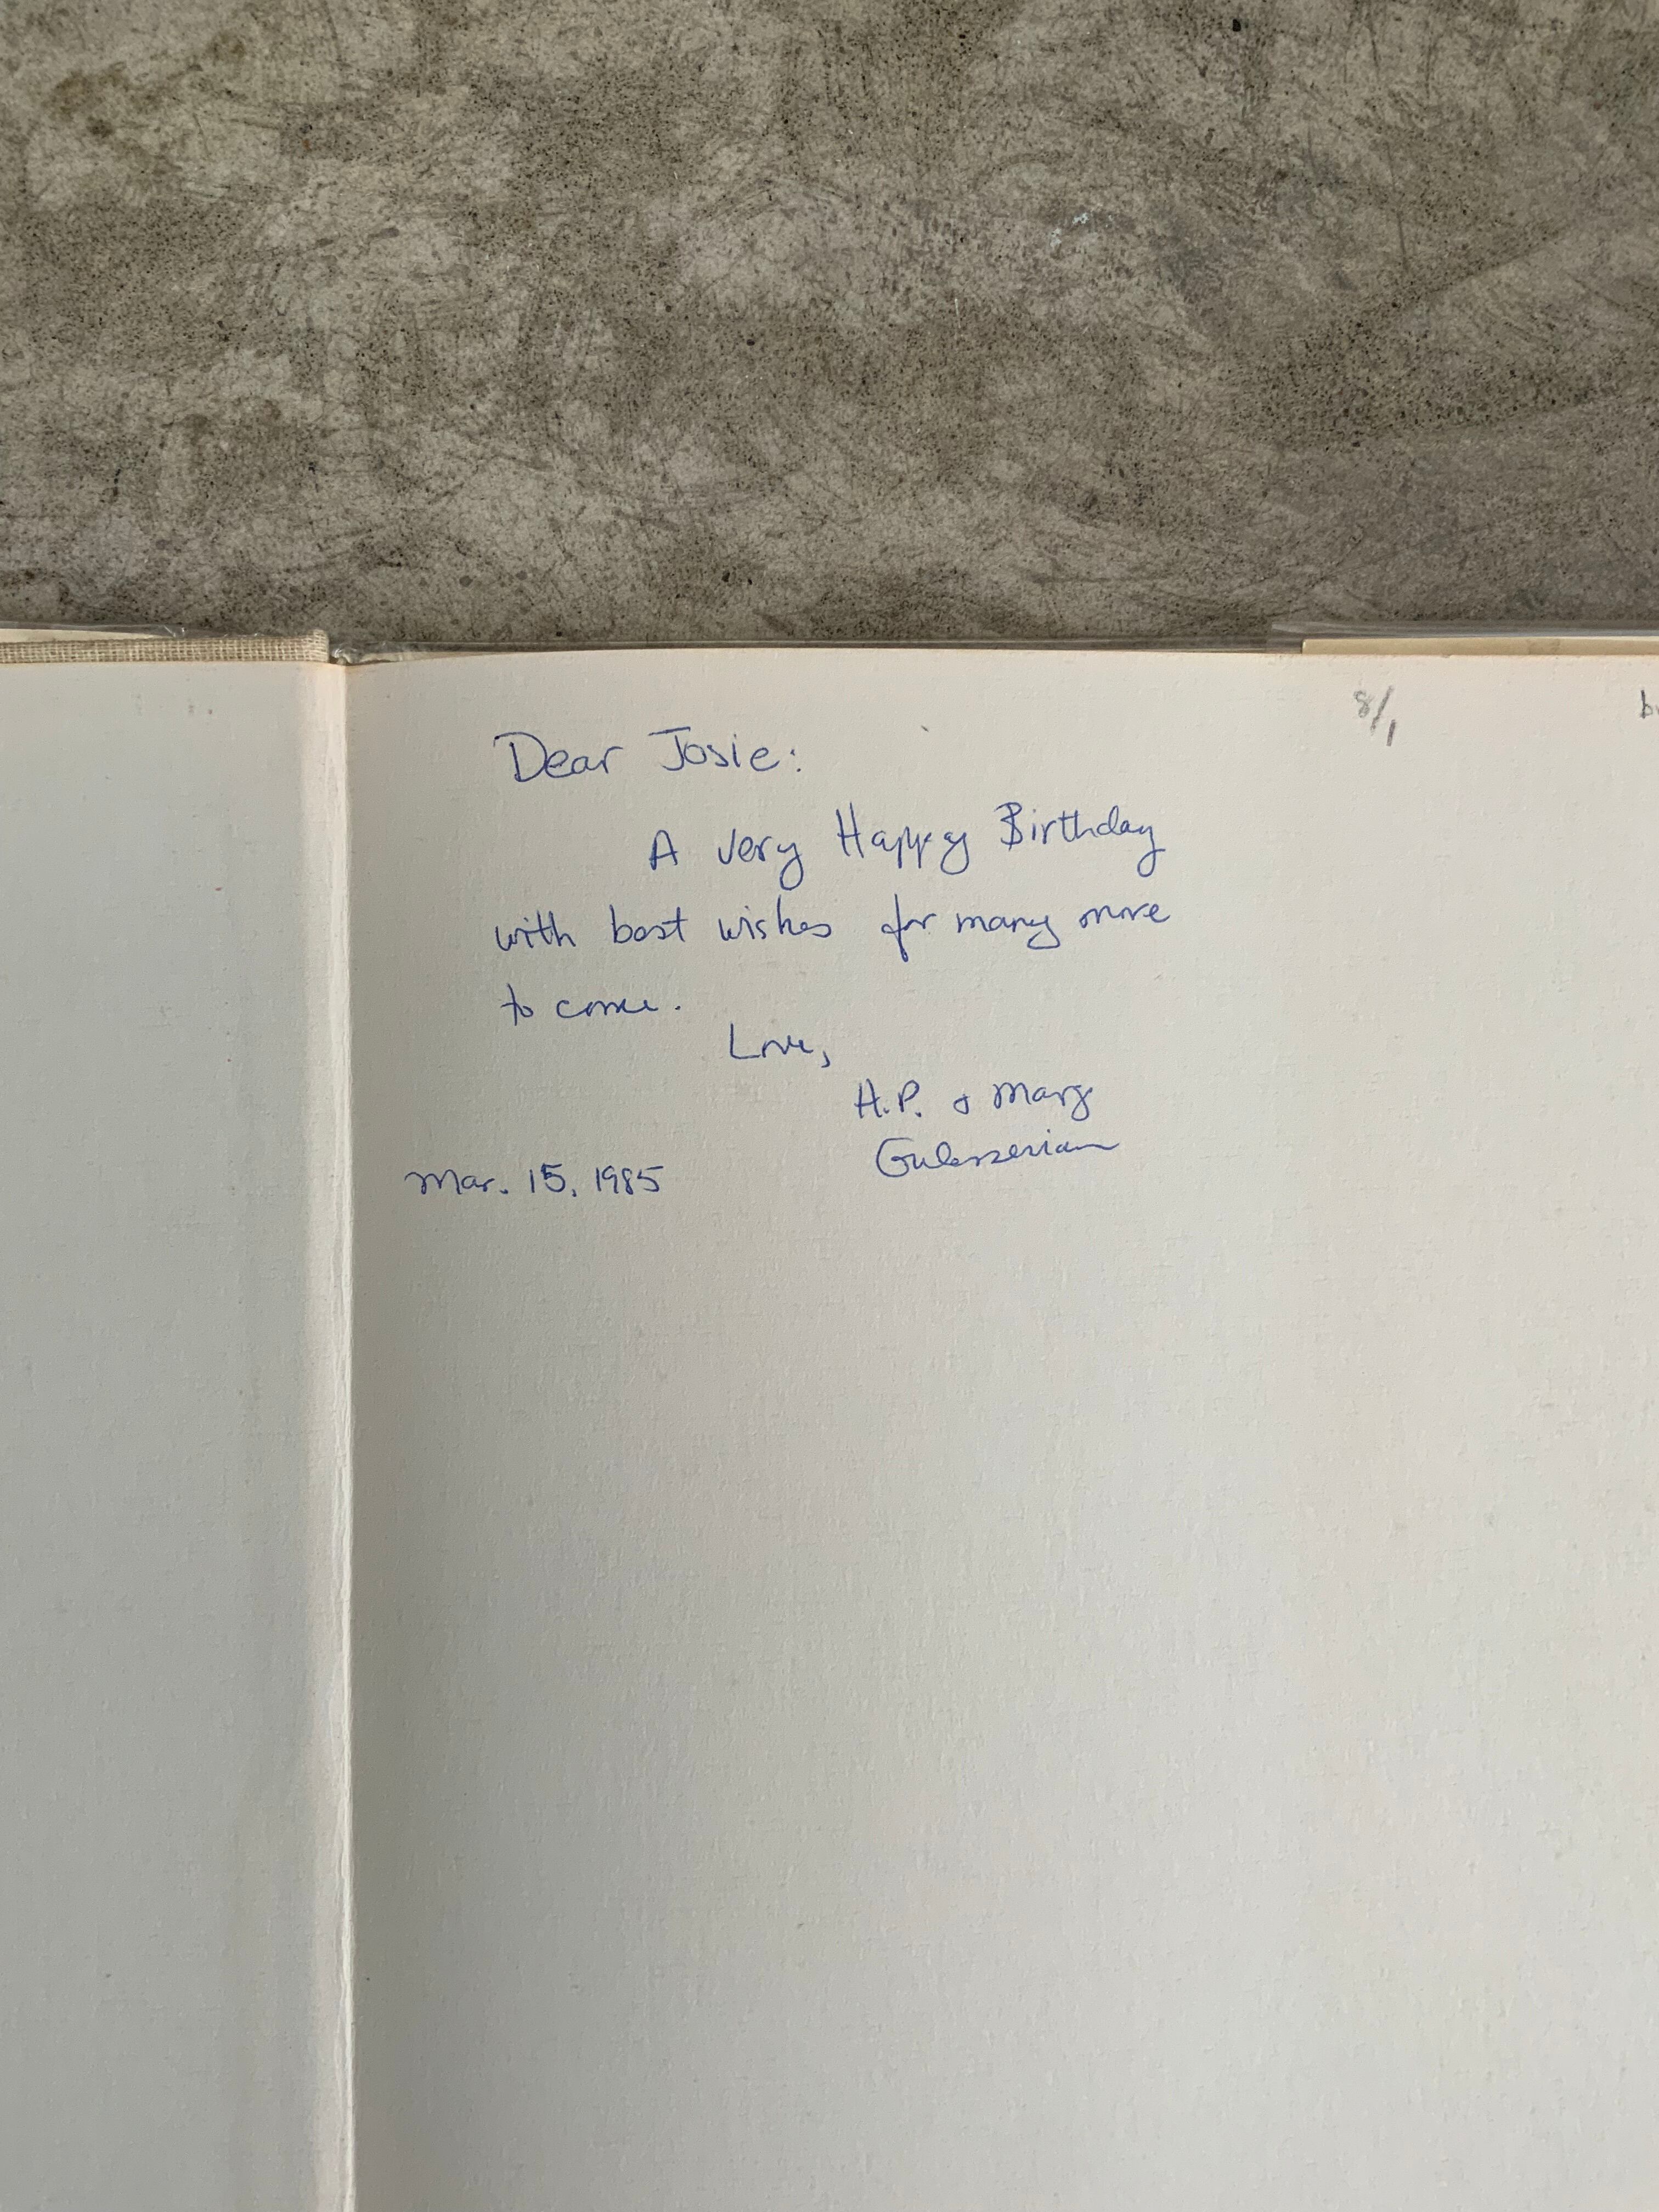 8/1
Dear Josie:
A very Happy Birthday
with best wishes for many more
to come.
Love,
A.P. & Marge
Gulesserian
Mar. 15, 1985